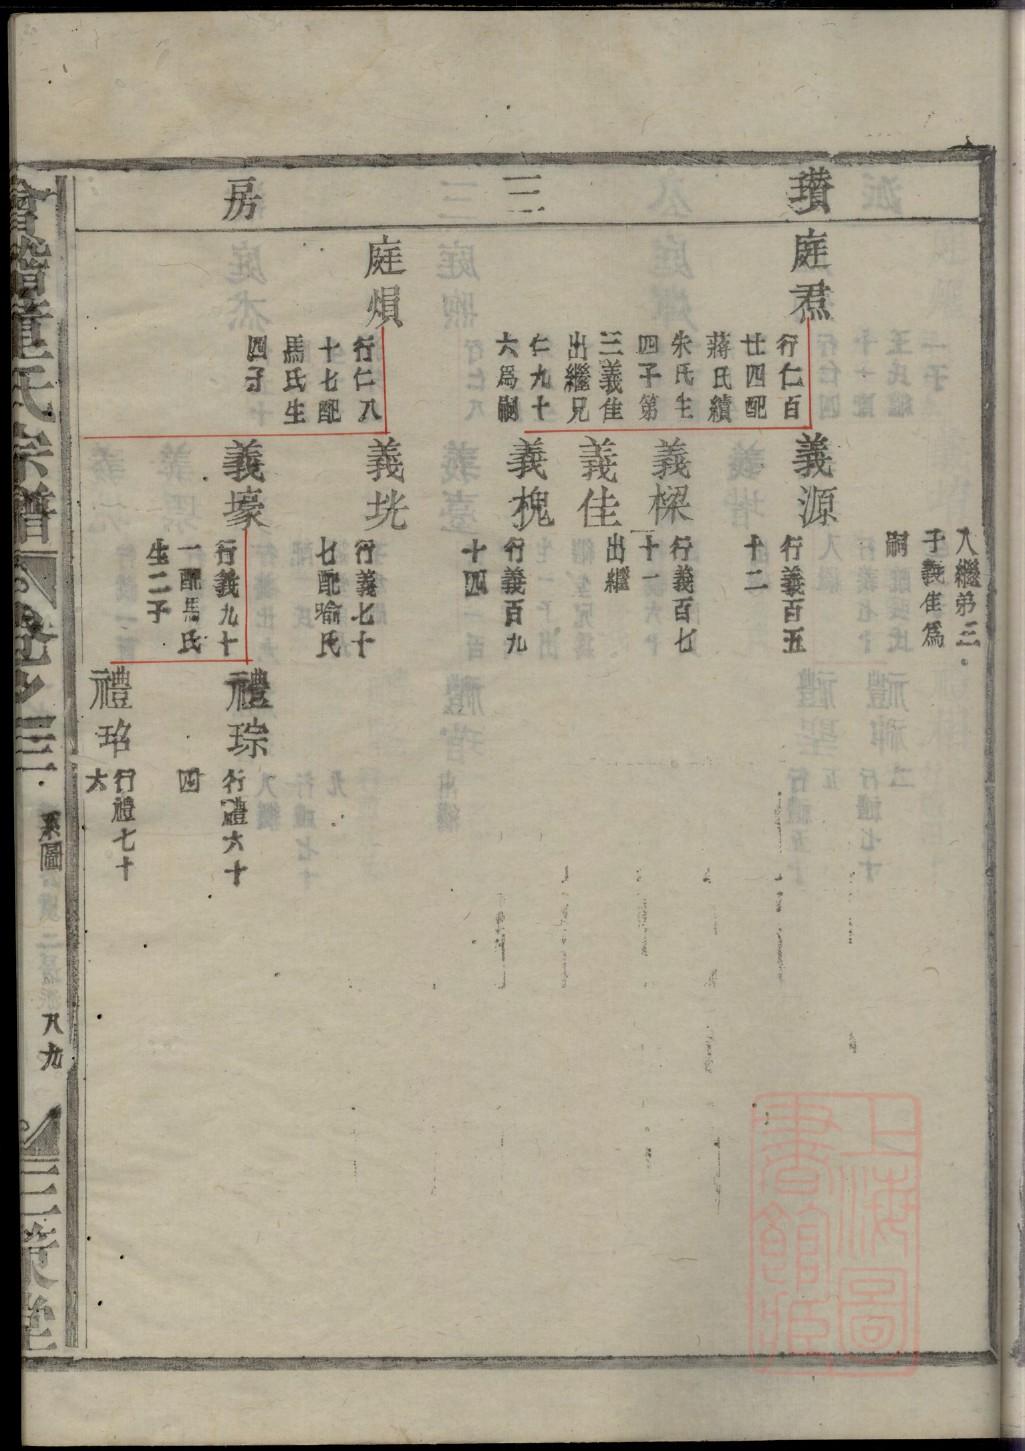 瓚三房
入繼第三
子義隹為
嗣
庭焄
行仁百
廿四配
蔣氏續
朱氏生
四子第
三義隹
出繼兄
仁九十
六為嗣
義源
行義百五
十二
義樑
行義百七
十一
義佳
出繼
義槐
行義百九
十四
庭熉
行仁八
十七配
馬氏生
四子
義垙
行義七十
七配喻氏
義壕
行義九十
一配馬氏
生二子
禮琮
行禮六十
四
禮珆
行禮七十
六
會稽童氏宗譜
卷之三
系圖
八九
三策堂
上海圖
書館藏